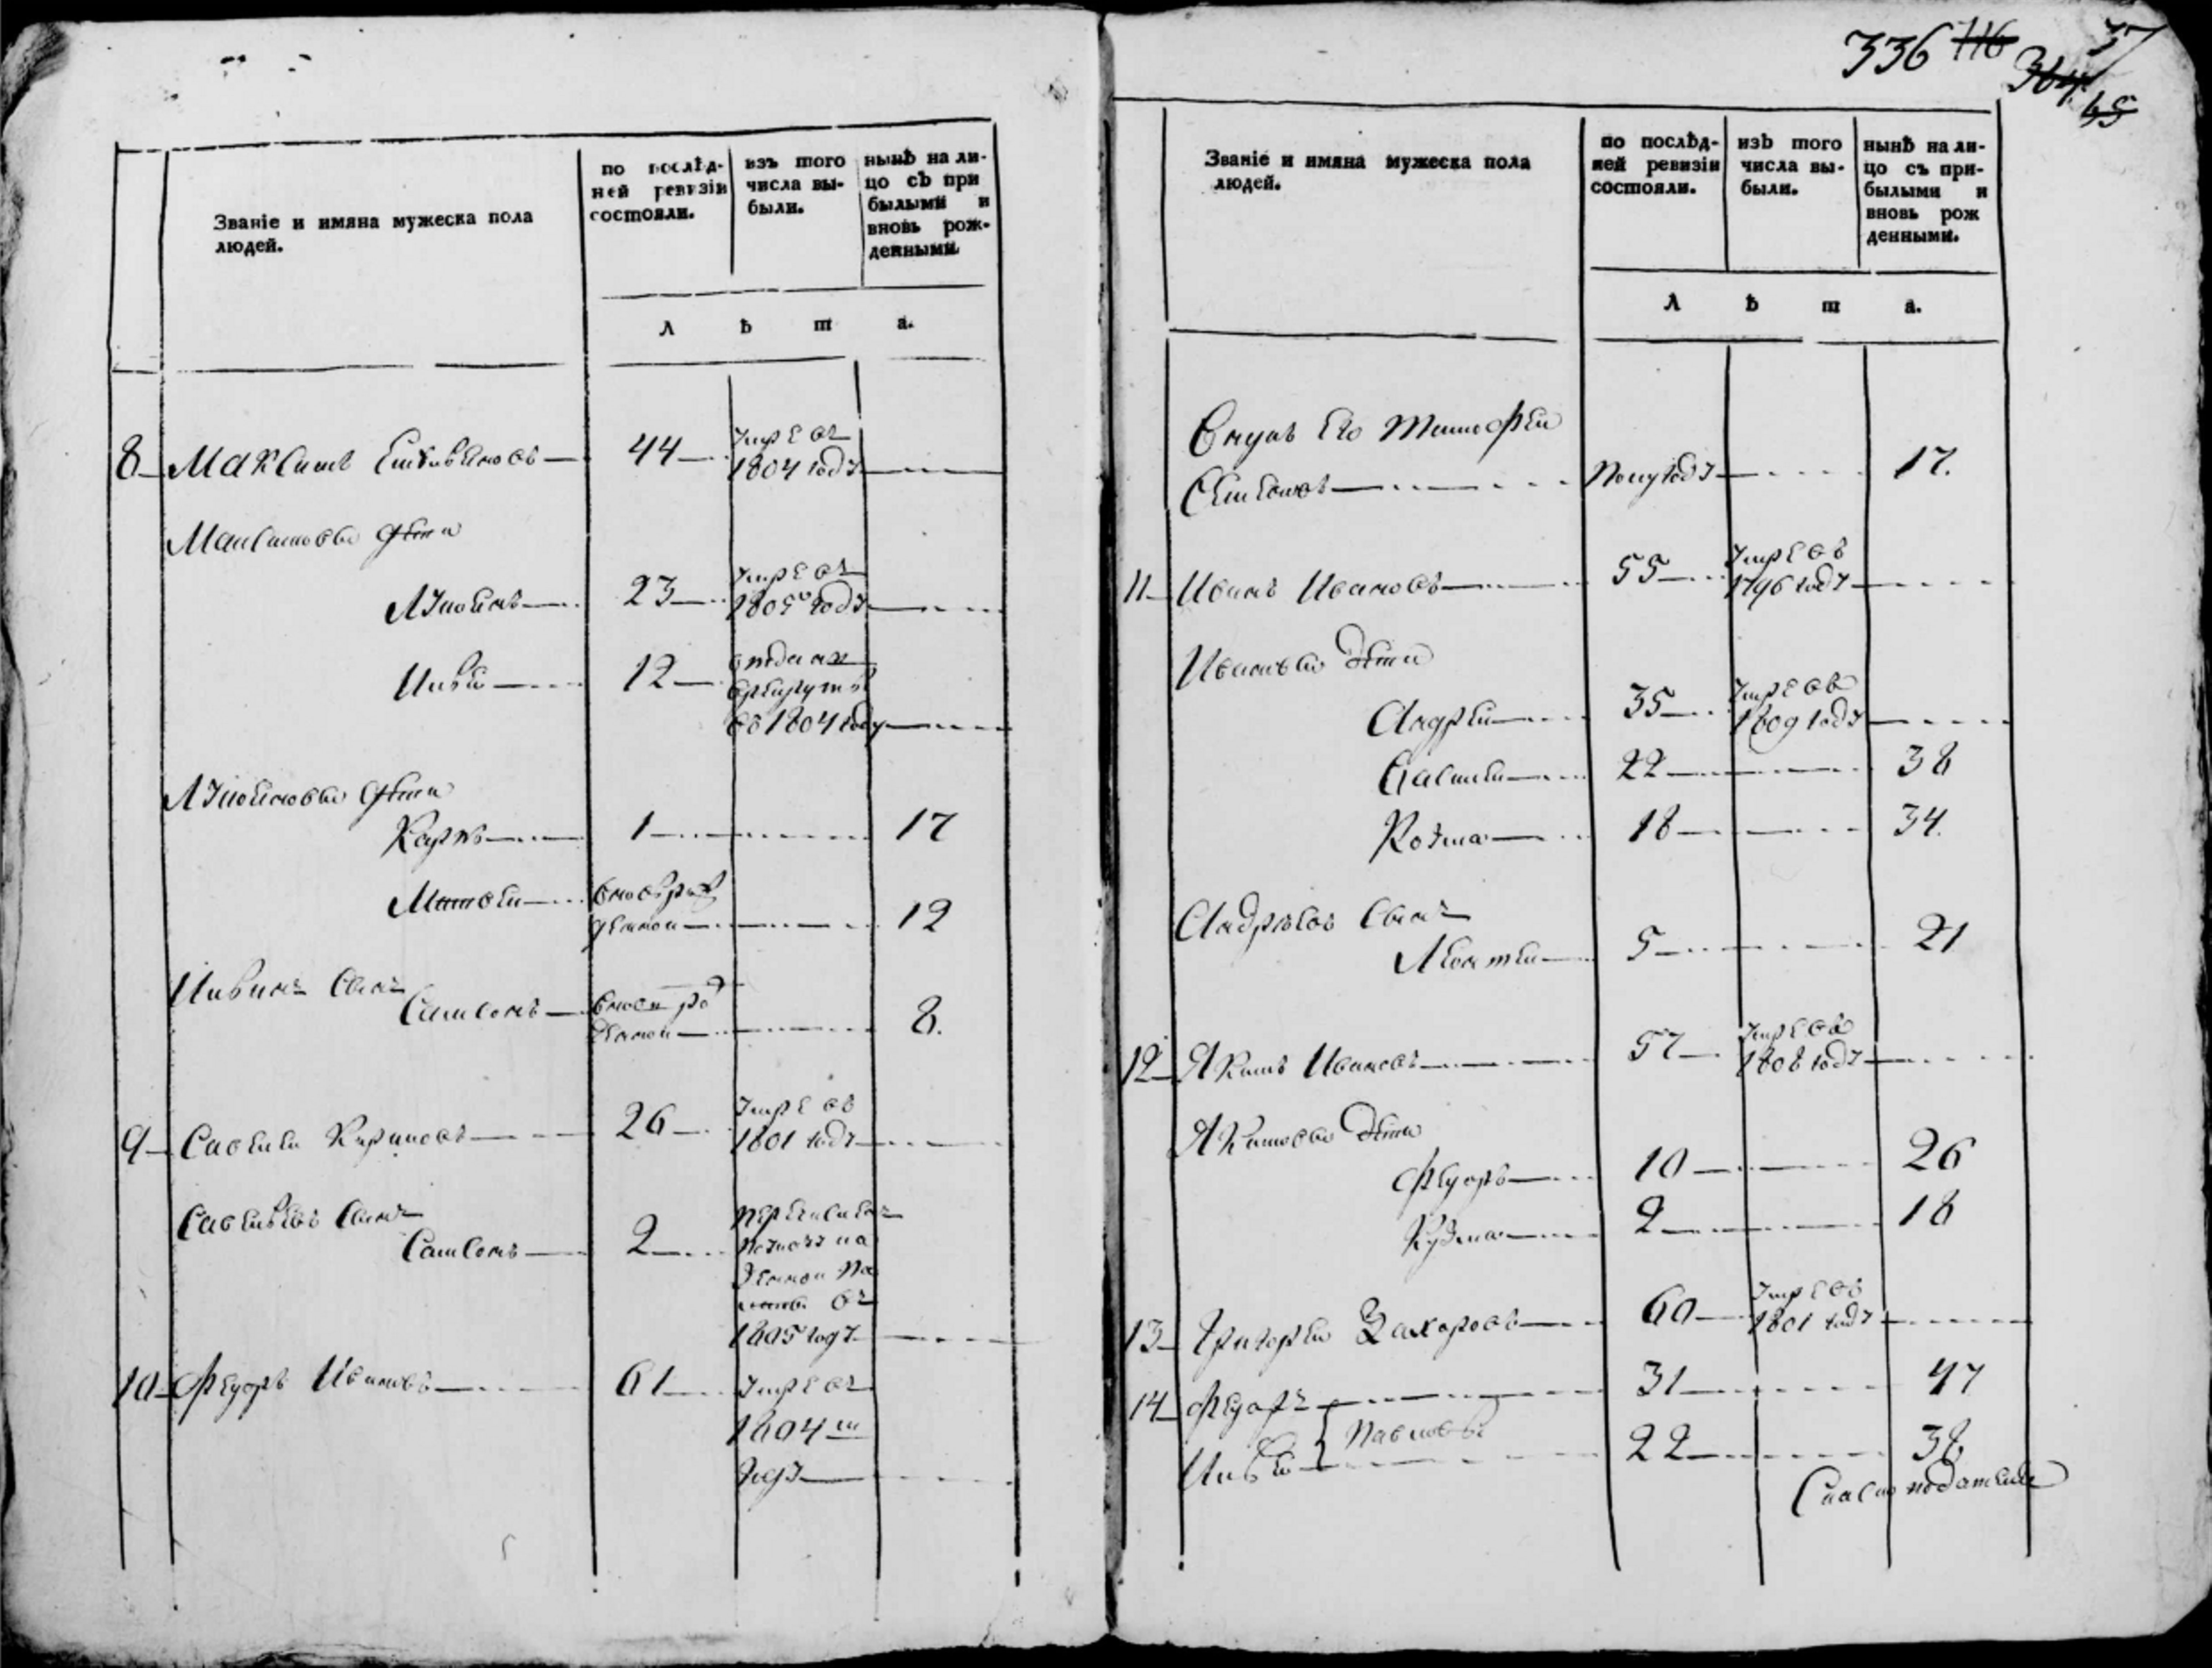 336 116 37
364
45
Званіе и имяна мужеска пола
людей.
по послѣд-
ней ревизіи
состояли.
изъ того
числа вы-
были.
нынѣ на ли-
цо съ при
былыми и
вновь рож-
денными
л ѣ т а.
8 Максимъ 44 умре въ
1804 году
Максимовы дѣти
23 умре въ
1805 году
12 отданъ
в рекруты
въ 1804 году
дѣти
Карпъ 1 17
Матвеи вновь рож
денной 12
сынъ
Самсонъ вновь ро
жденной 8.
9 Савелеи Кириловъ 26 умре въ
1801 году
Савельевъ сынъ
Самсонъ 2
1805 году
10 Федоръ Ивановъ 61 умре въ
1804 м
году
Званіе и имяна мужеска пола
людей.
по послѣд-
ней ревизіи
состояли.
изъ того
числа вы-
были.
нынѣ на ли-
цо съ при-
былыми и
вновь рож
денными.
л ѣ т а.
Внукъ его Тимофеи
Семеновъ полугоду 17.
11 Иванъ Ивановъ 55 умре въ
1796 году
Ивановы дѣти
Андреи 35 умре въ
1809 году
22 38
Козма 18 34.
Андрѣевъ сынъ
Леонтеи 5 21
12 Якимъ Ивановъ 57 умре въ
1808 году
Якимовы дѣти
Федоръ 10 26
Кузма 2 18
13 Григореи Захаровъ 60 умре въ
1801 году
14 Федоръ 31 47
Павловы
22 38